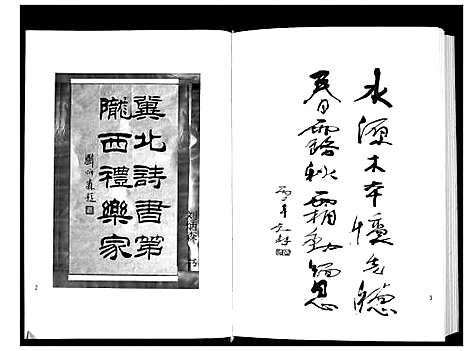 水源木本懷先德
春露秋霜動遐思
3
冀北詩書第
隴西禮樂家
2